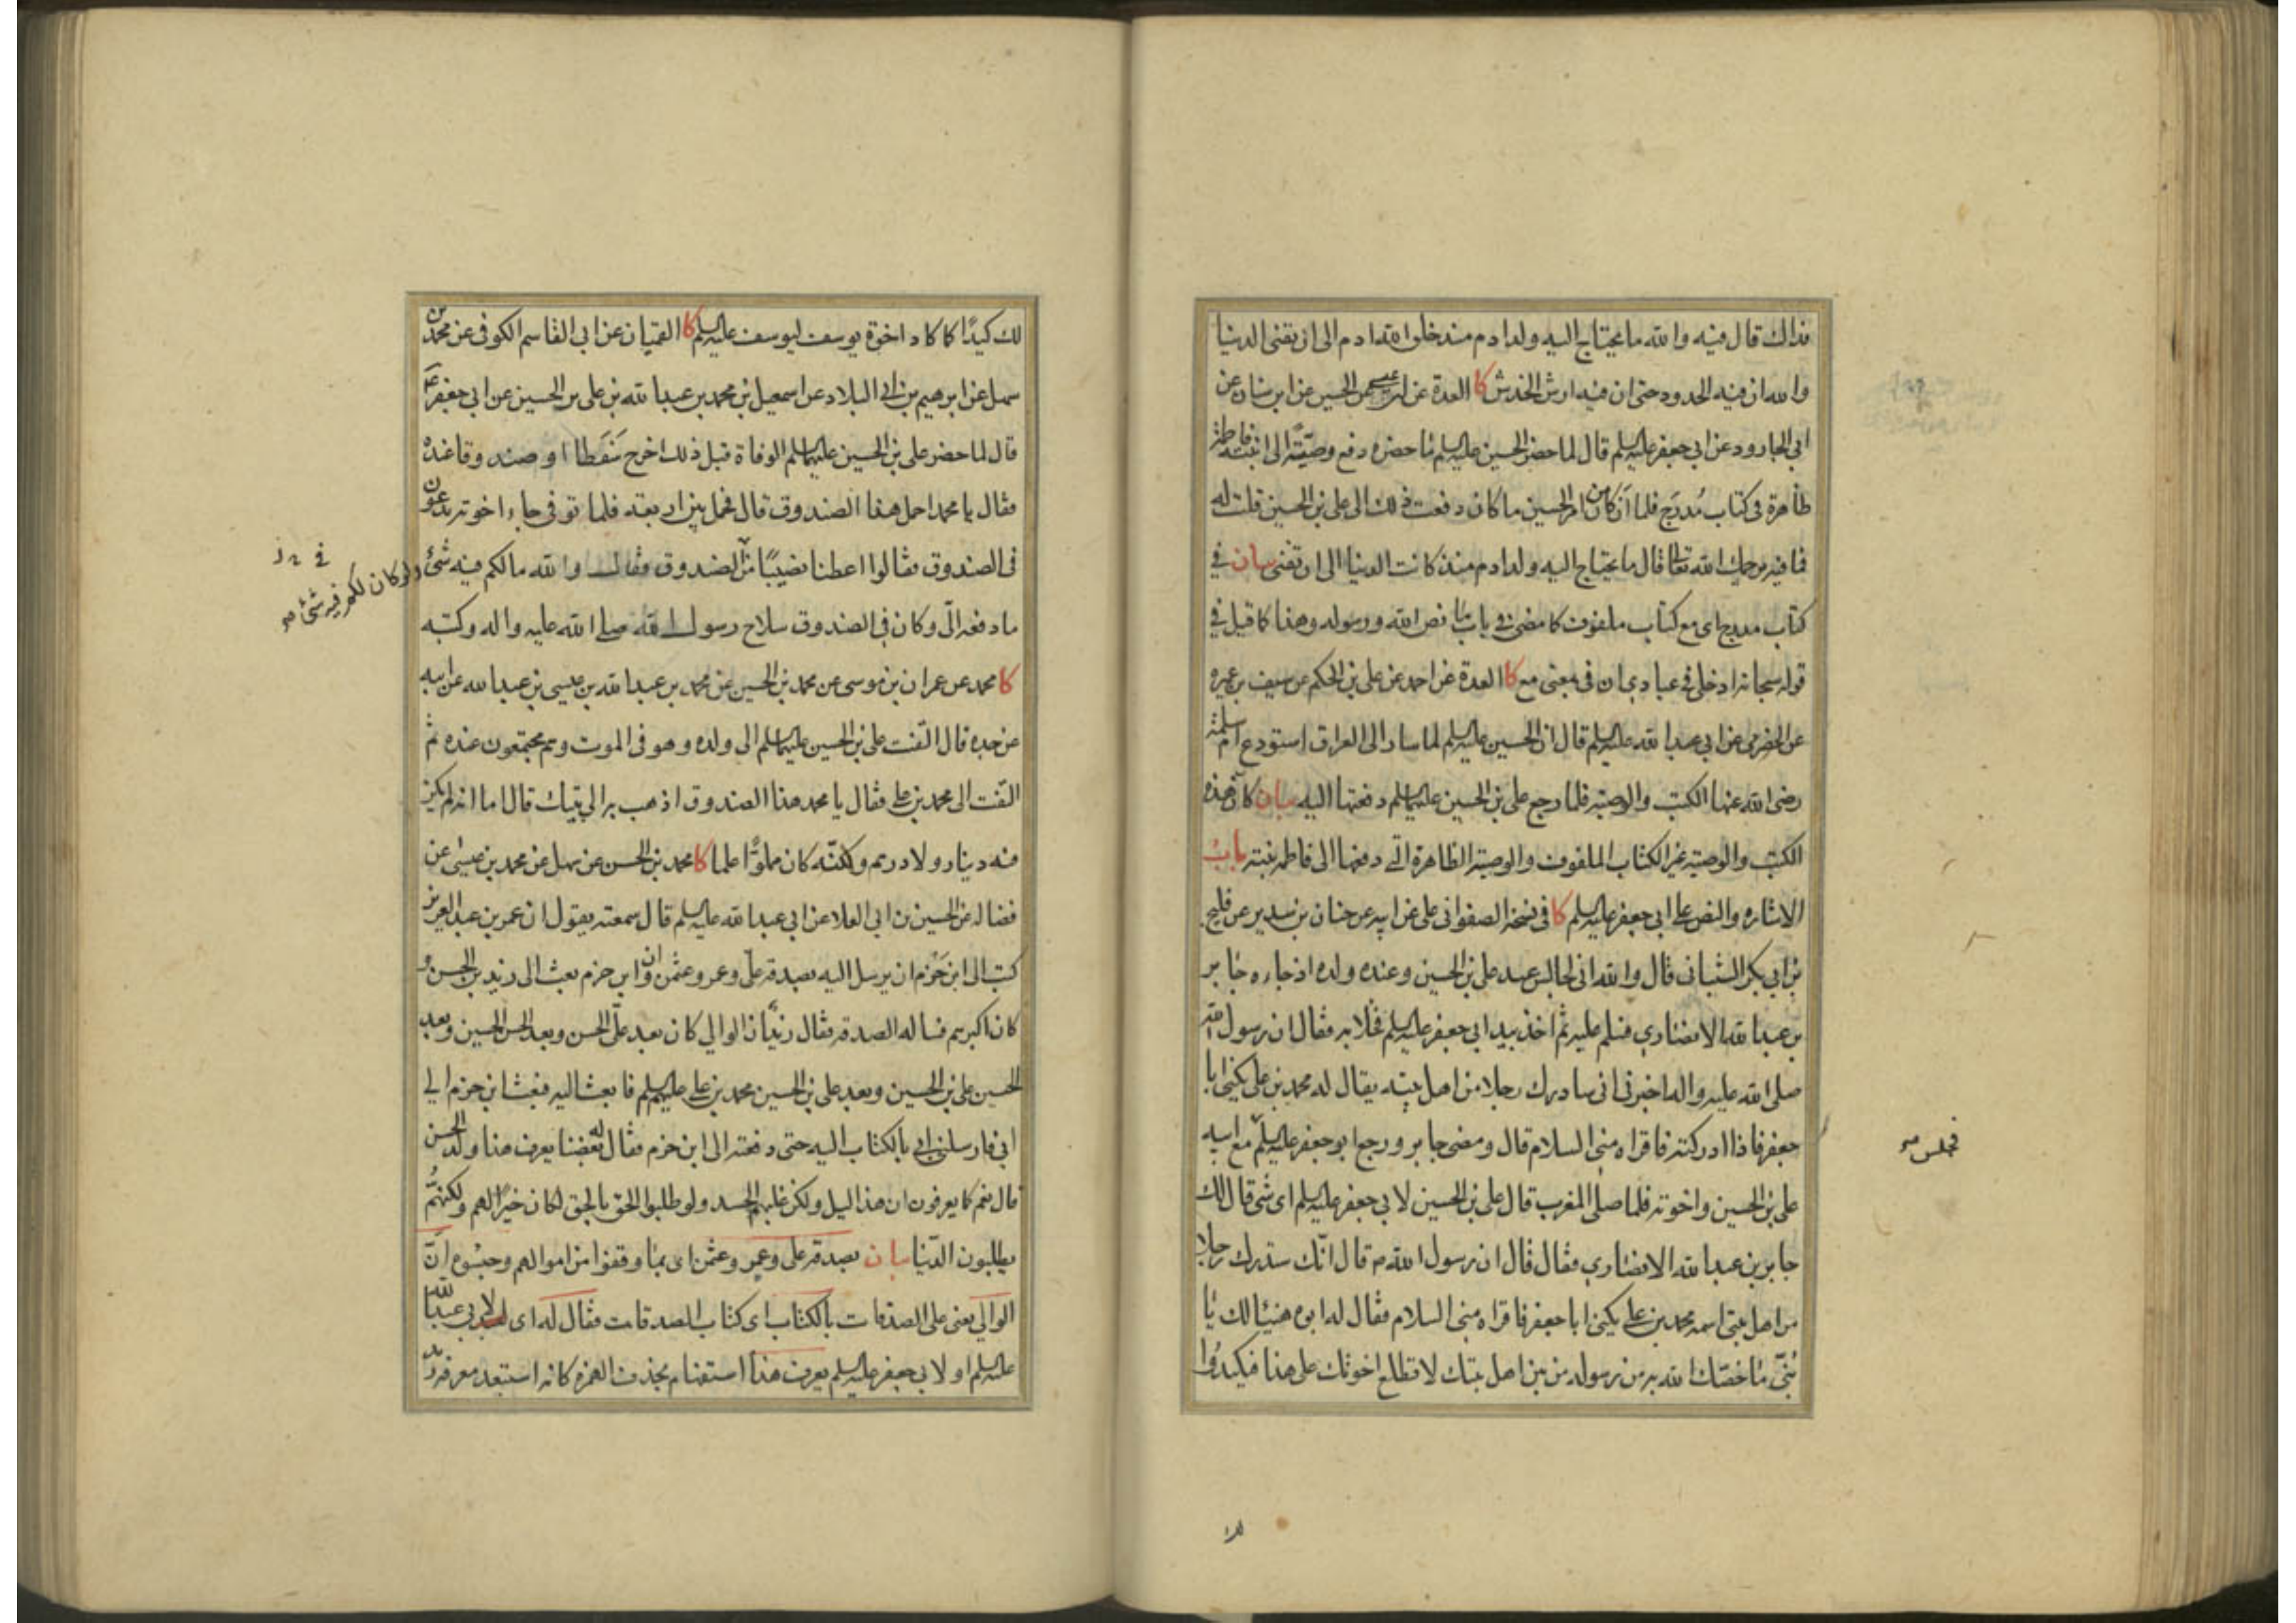 فذالك قال فيه والله ما يحتاج اليه ولد ادم منذ خلق الله ادم الى ان تفنى الدنيا
والله ان فيه الحدود حتى ان فيه ارش الخدش كا العدة عن ابن عيسى عن الحسين عن ابن سنان عن
ابي الجارود عن ابي جعفر عليه السلم قال لما حضر الحسين عليه السلم ما حضره دفع وصيته الى ابنته فاطمة
ظاهرة في كتاب مُدرَج فلما أن كان من امر الحسين ما كان دفعت ذلك الى علي بن الحسين قلت له
فما فيه يرحمك الله تعالى قال ما يحتاج اليه ولد ادم منذ كانت الدنيا الى ان تفنى بيان في
كتاب مدرج اي مع كتاب ملفوف كما مضى في باب ما نص الله ورسوله وهذا كما قيل في
قوله سبحانه ادخلي في عبادي ان في بمعنى مع كا العدة عن احمد عن علي بن الحكم عن سيف بن عميره
عن الحضرمي عن ابي عبد الله عليه السلم قال ان الحسين عليه السلم لما سار الى العراق استودع ام سلمة
رضى الله عنها الكتب والوصية فلما رجع علي بن الحسين عليهما السلم دفعتها اليه بيان كان هذه
الكتب والوصية غير الكتاب الملفوف والوصية الظاهرة التي دفعها الى فاطمة بنته باب
الاشاره والنص على ابي جعفر عليه السلم كا في نسخة الصفواني علي عن ابيه عن حنان بن سدير عن فليح
بن ابي بكر الشيباني قال والله اني لجالس عند علي بن الحسين وعنده ولده اذ جاءه جابر
بن عبد الله الانصاري فسلم عليه ثم اخذ بيد ابي جعفر عليه السلم فخلا به فقال ان رسول الله
صلى الله عليه واله اخبرني اني سادرك رجلا من اهل بيته يقال له محمد بن علي يكنى ابا
جعفر فاذا ادركته فاقراه مني السلام قال ومضى جابر ورجع ابو جعفر عليه السلم مع ابيه
فجلس صح
علي بن الحسين واخوته فلما صلى المغرب قال علي بن الحسين لابي جعفر عليه السلم اى شئ قال لك
جابر بن عبد الله الانصاري فقال قال ان رسول الله ص قال انّك ستدرك رجلا
من اهل بيتي اسمه محمد بن علي يكنى ابا جعفر فاقراه مني السلام فقال له ابوه هنيئا لك يا
بُنيّ ما خصّك الله به من رسوله من بين اهل بيتك لا تطلع اخوتك على هذا فيكيدُوا
لك
لك كيدًا كما كاد اخوة يوسف ليوسف عليه السلم كا القميان عن ابي القاسم الكوفي عن محمد بن
سهل عن ابرهيم بن ابي البلاد عن اسمعيل بن محمد بن عبد الله بن علي بن الحسين عن ابي جعفر ع
قال لما حضر علي بن الحسين عليهما السلم الوفاة قبل ذلك اخرج سَفَطا او صندوقا عنده
فقال يا محمد احمل هذا الصندوق قال فحمل بين اربعة فلما توفي جاء اخوته يدعون
في الصندوق فقالوا اعطنا نصيبًا من الصندوق فقال والله ما لكم فيه شئ
ولو كان لكم فيه شئ صح
ما دفعه الّى وكان في الصندوق سلاح رسول الله صلى الله عليه واله وكتبه
كا محمد عن عمران بن موسى عن محمد بن الحسين عن محمد بن عبد الله بن عيسى بن عبد الله عن ابيه
عن جده قال التفت علي بن الحسين عليهما السلم الى ولده وهو في الموت وهم مجتمعون عنده ثم
التفت الى محمد بن علي فقال يا محمد هذا الصندوق اذهب به الى بيتك قال اما انه لم يكن
فيه دينار ولا درهم ولكنّه كان مملوًّا علما كا محمد بن الحسن عن سهل عن محمد بن عيسى عن
فضاله عن الحسين بن ابي العلا عن ابي عبد الله عليه السلم قال سمعته يقول ان عمر بن عبد العزيز
كتب الى ابن حَزم ان يرسل اليه بصدقة علّي وعمر وعثمن وان ابن حزم بعث الى زيد بن الحسن و
كان اكبرهم فساله الصدقة فقال زيد ان الوالي كان بعد علّي الحسن وبعد الحسن الحسين وبعد
الحسين علي بن الحسين وبعد علي بن الحسين محمد بن علي عليهم السلم فابعث اليه فبعث ابن حزم الى
ابي فارسلني ابي بالكتاب اليه حتى دفعته الى ابن حزم فقال له بعضنا يعرف هذا ولد الحسن
قال نعم كما يعرفون ان هذا ليل ولكن غلبهم الحسد ولو طلبوا الحق بالحق لكان خيرًا لهم ولكنهم
يطلبون الدّنيا بيان بصدقة علي وعمر وعثمن اى بما وقفوا من اموالهم وحبسوه انّ
الوالي يعنى على الصدقات بالكتاب اى كتاب الصدقات فقال له اى لابي عبد الله
عليه السلم او لابي جعفر عليه السلم يعرف هذا استفهام بحذف الهمزة كانه استبعد معرفة ولد